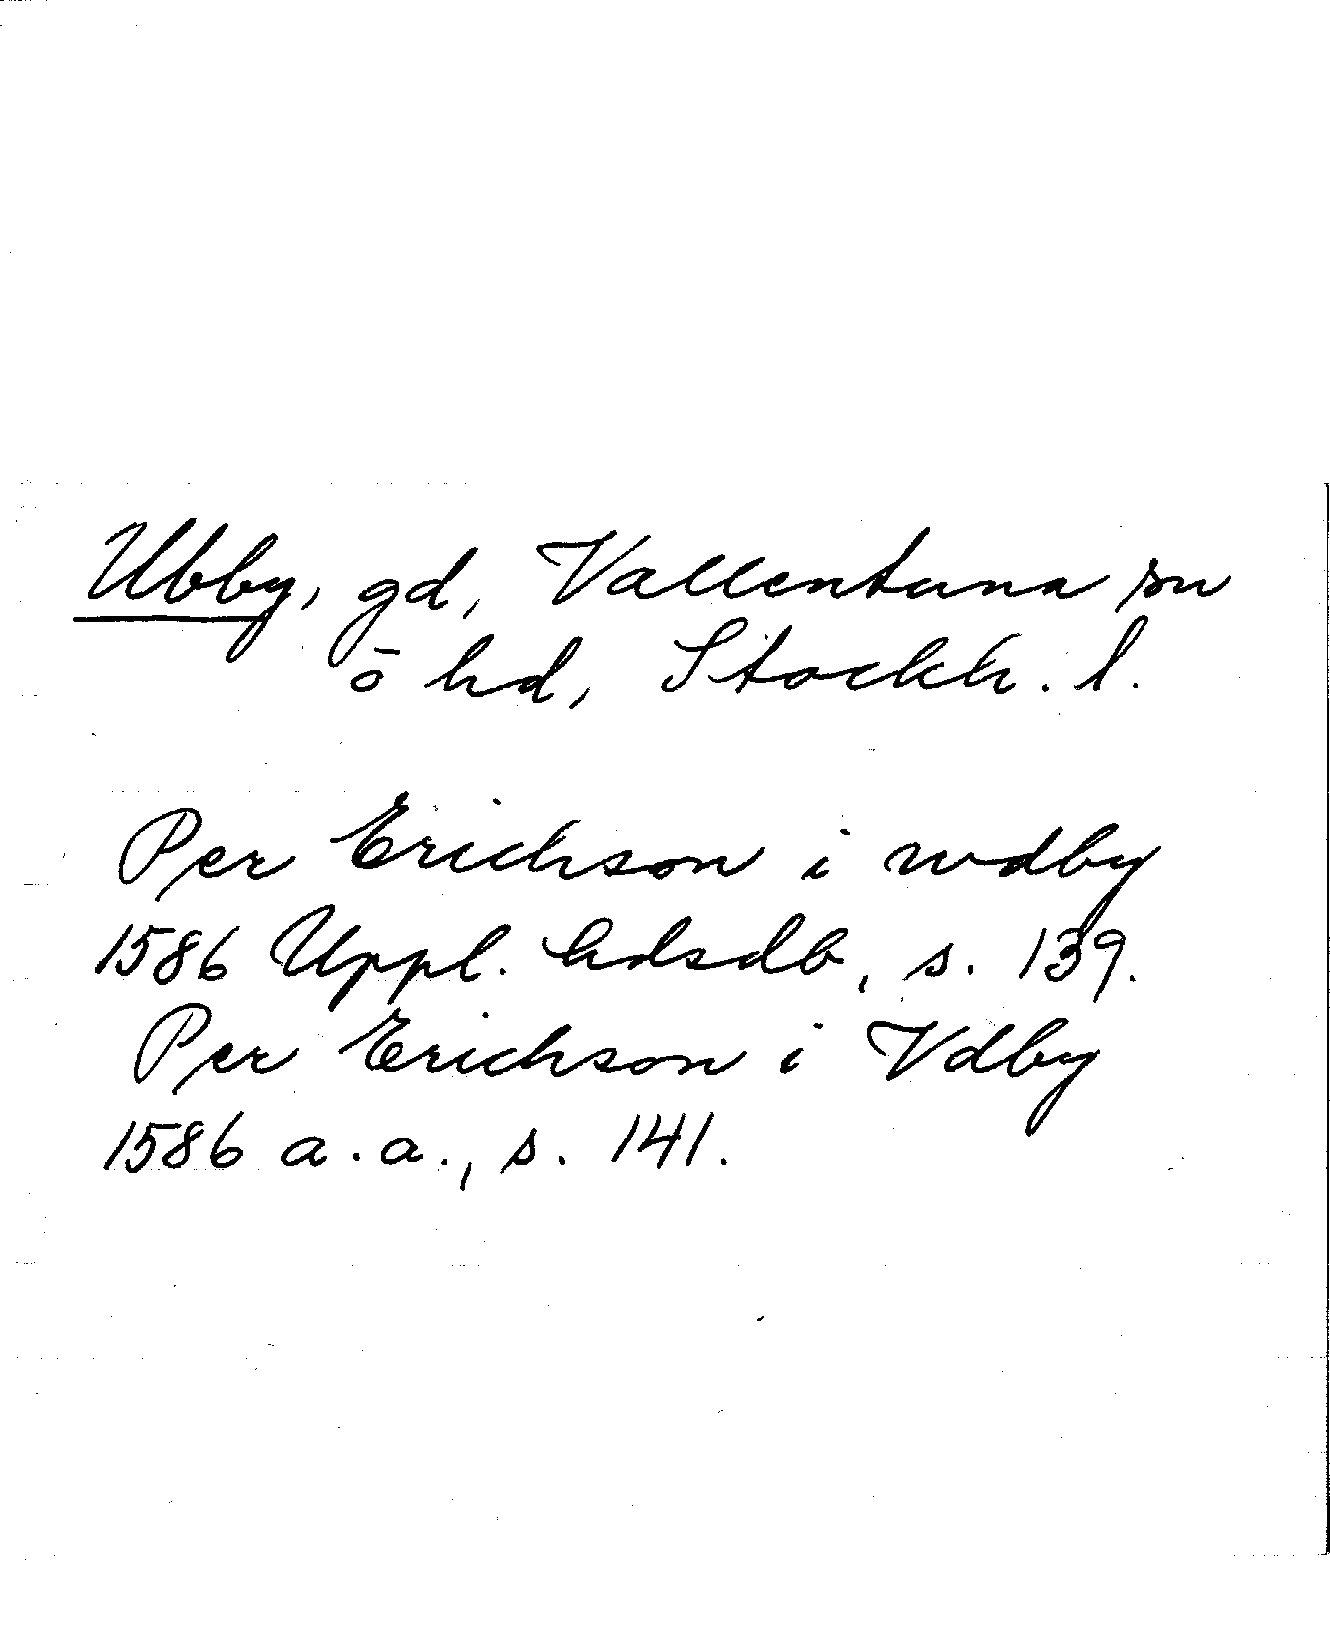 Ubby, gd, Vallentuna sn
o hd, Stockh. l.
Per Erichson i wdby
1586 Uppl. hdsdb, s. 139.
Per Erichson i Vdby
1586 a.a., s. 141.